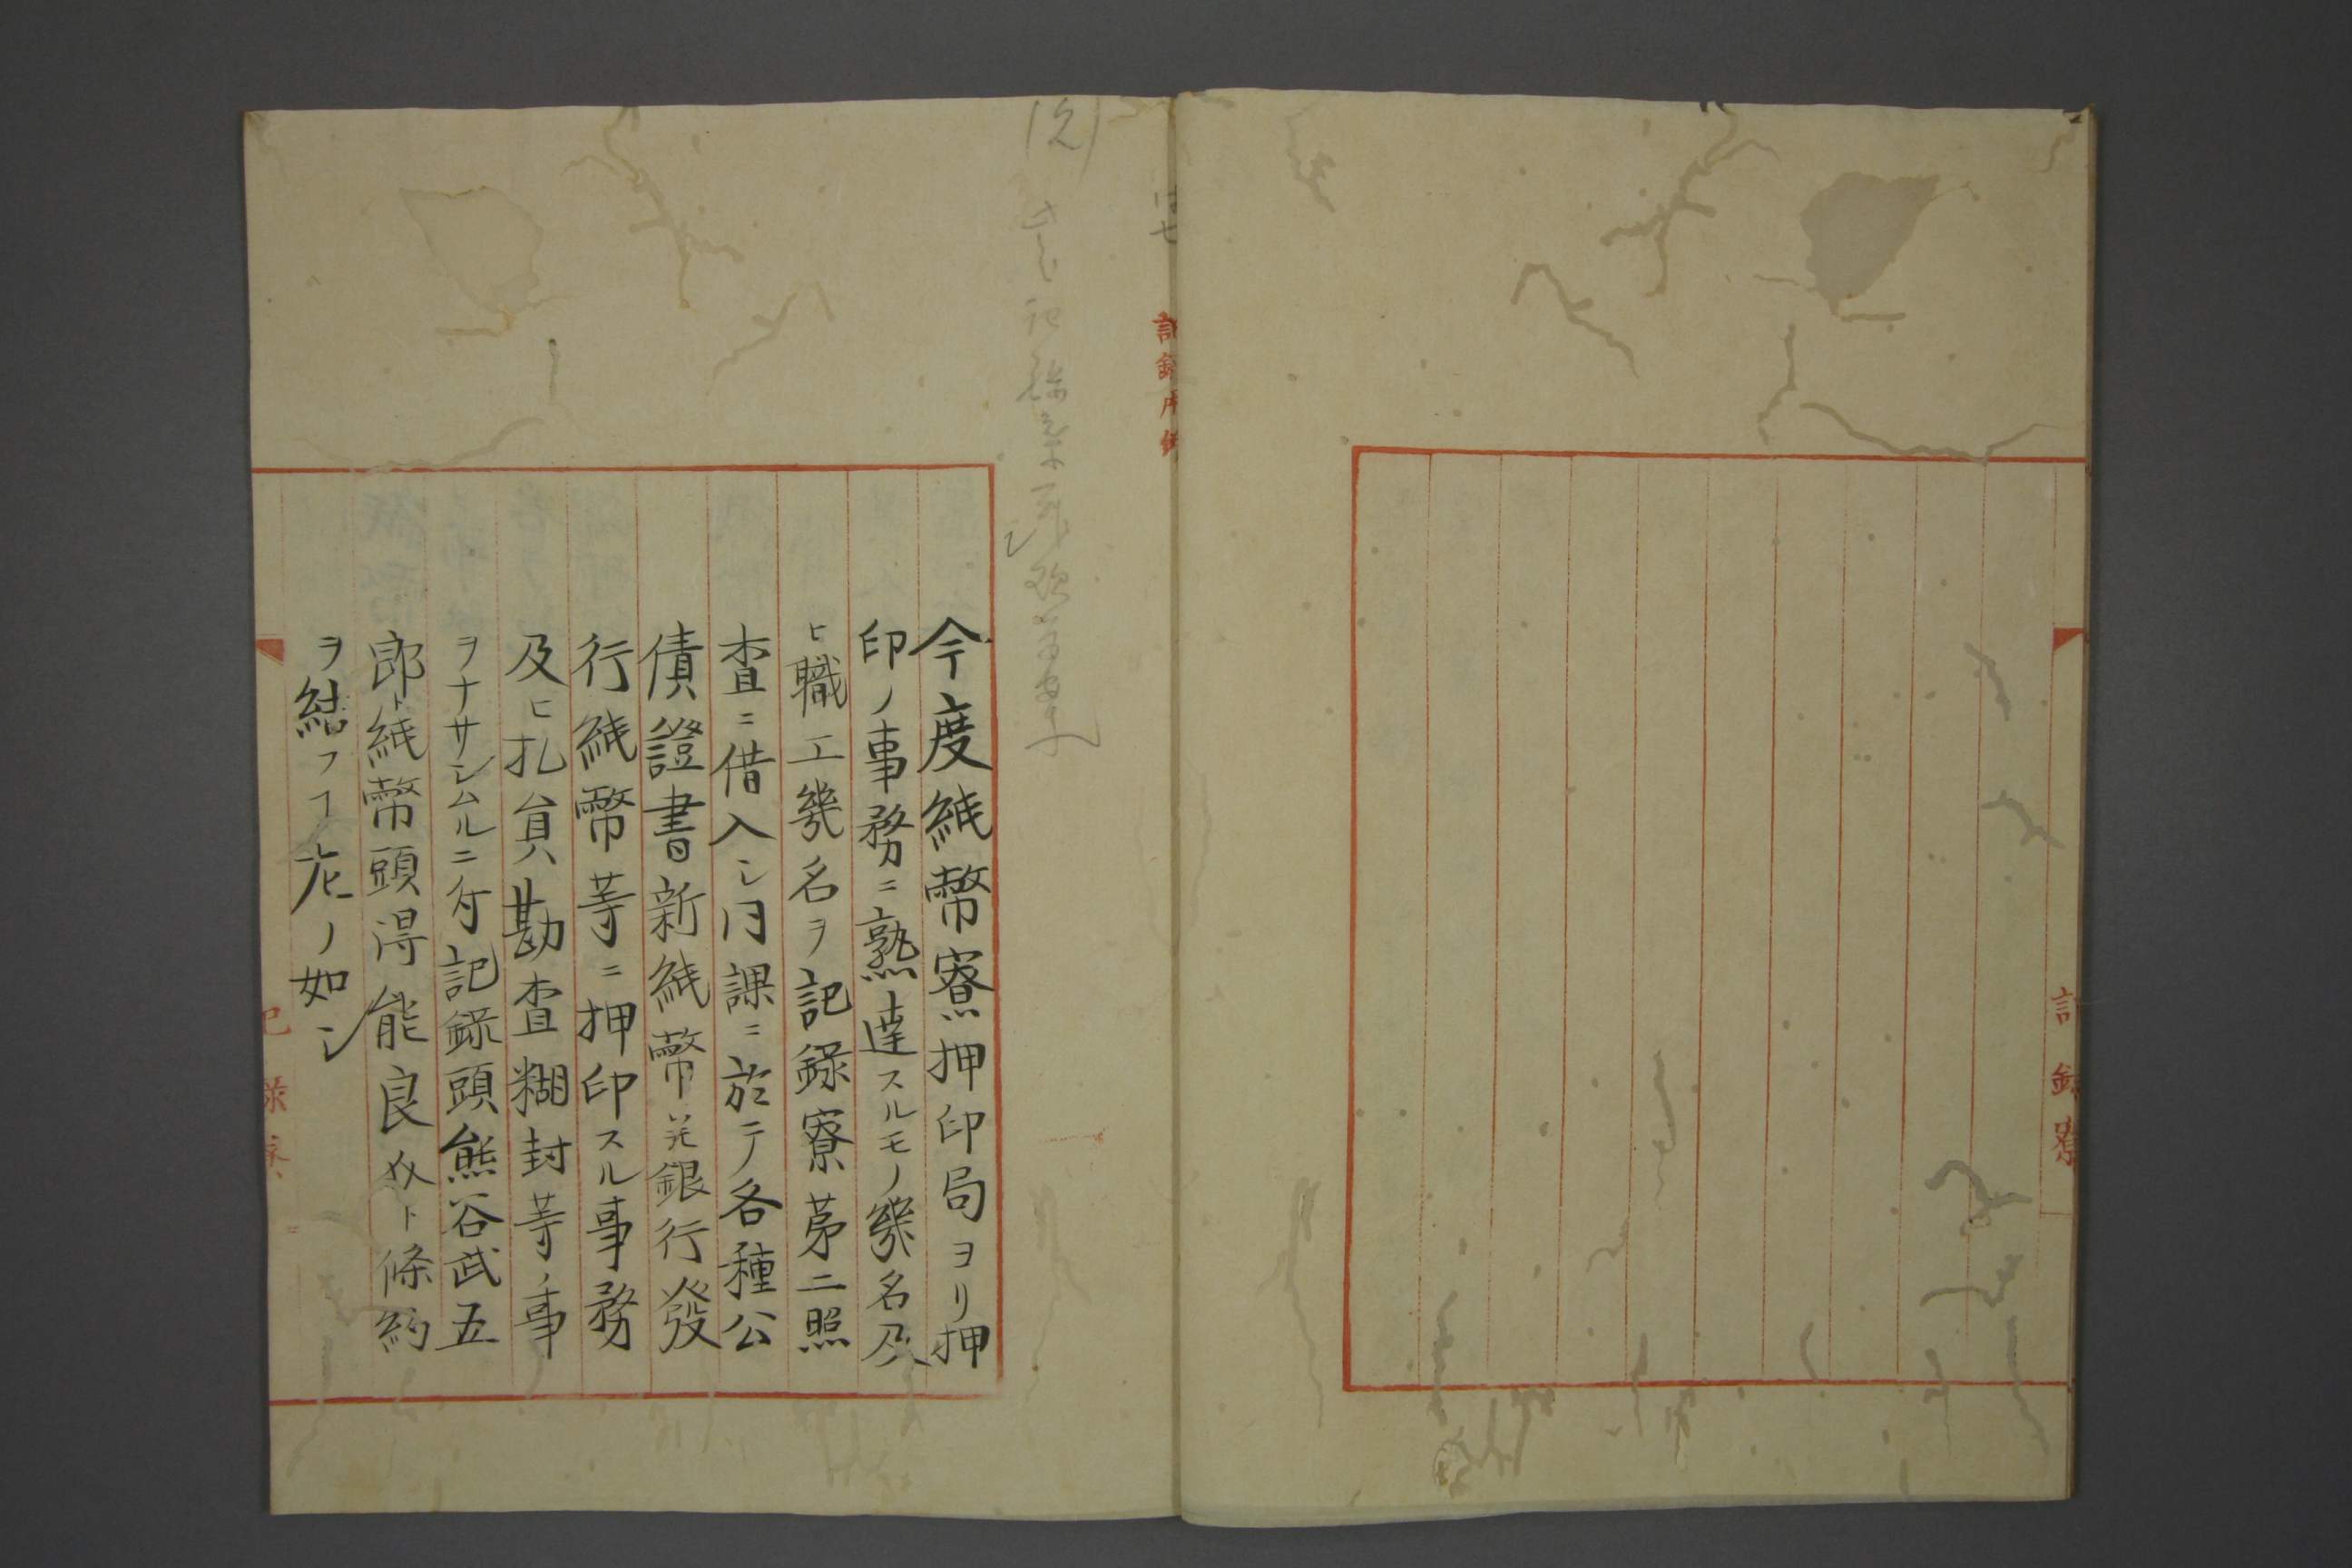 記録寮
今度紙幣寮押印局ヨリ押
印ノ事務ニ熟達スルモノ幾名及
ヒ職工幾名ヲ記録寮第二照
査ニ借入シ同課ニ於テ各種公
債證書新紙幣並銀行發
行紙幣等ニ押印スル事務
及ヒ扎員勘査糊封等ノ事
ヲナサシムルニ付記録頭熊谷武五
郎ト紙幣頭得能良介ト條約
ヲ結フヿ左ノ如シ